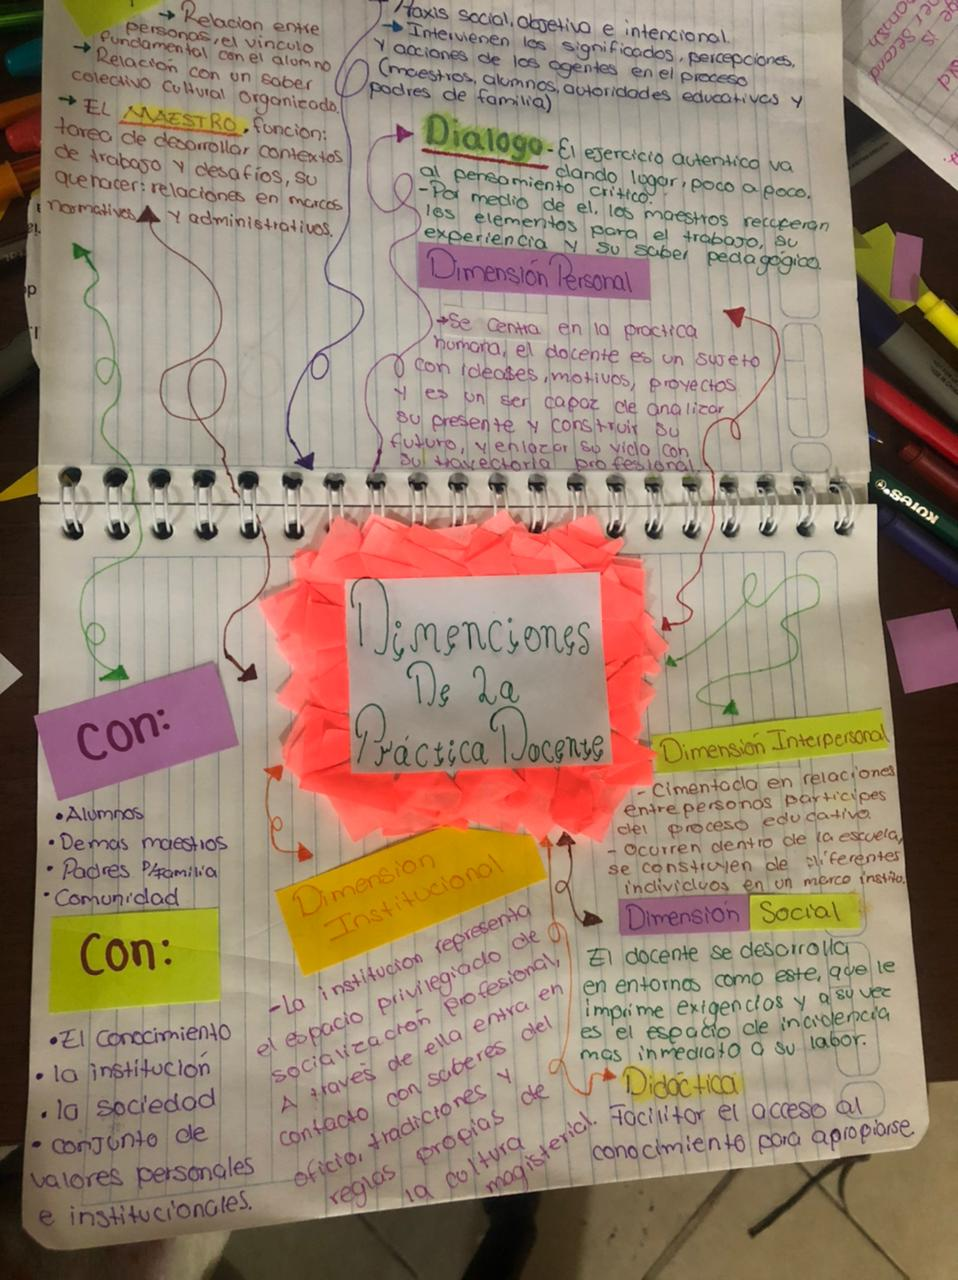 → Relacion entre
personas, el vinculo
fundamental con el alumno
→ Relación con un saber
colectivo cultural organizado.
→ EL MAESTRO, funcion:
tarea de desarrollar contextos
de trabajo y desafíos, su
quehacer: relaciones en marcos
normativos y administrativos.
Praxis social, objetiva e intencional.
→ Intervienen los significados, percepciones,
y acciones de los agentes en el proceso
(maestros, alumnos, autoridades educativas y
padres de familia)
Dialogo - El ejercicio autentico va
dando lugar, poco a poco,
al pensamiento crítico.
- Por medio de el, los maestros recuperan
los elementos para el trabajo, su
experiencia y su saber pedagógico.
Dimensión Personal
→ Se centra en la practica
humana, el docente es un sujeto
con ideales, motivos, proyectos
y es un ser capaz de analizar
su presente y construir su
futuro, y enlazar su vida con
su trayectoria profesional.
Kores
Dimenciones
De La
Práctica Docente
Con:
• Alumnos
• Demas maestros
• Padres P/familia
• Comunidad
Con:
• El conocimiento
• la institución
• la sociedad
• conjunto de
valores personales
e institucionales.
Dimension
Institucional
- La institucion representa
el espacio privilegiado de
socialización profesional,
A través de ella entra en
contacto con saberes del
oficio, tradiciones y
reglas propias de
la cultura
magisterial.
Dimensión Interpersonal
- Cimentada en relaciones
entre personas participes
del proceso educativo.
- ocurren dentro de la escuela,
se construyen de diferentes
individuos en un marco instito.
Dimensión Social
El docente se desarrolla
en entornos como este, que le
imprime exigencias y a su vez
es el espacio de incidencia
mas inmediato a su labor.
Didáctica
Facilitar el acceso al
conocimiento para apropiarse